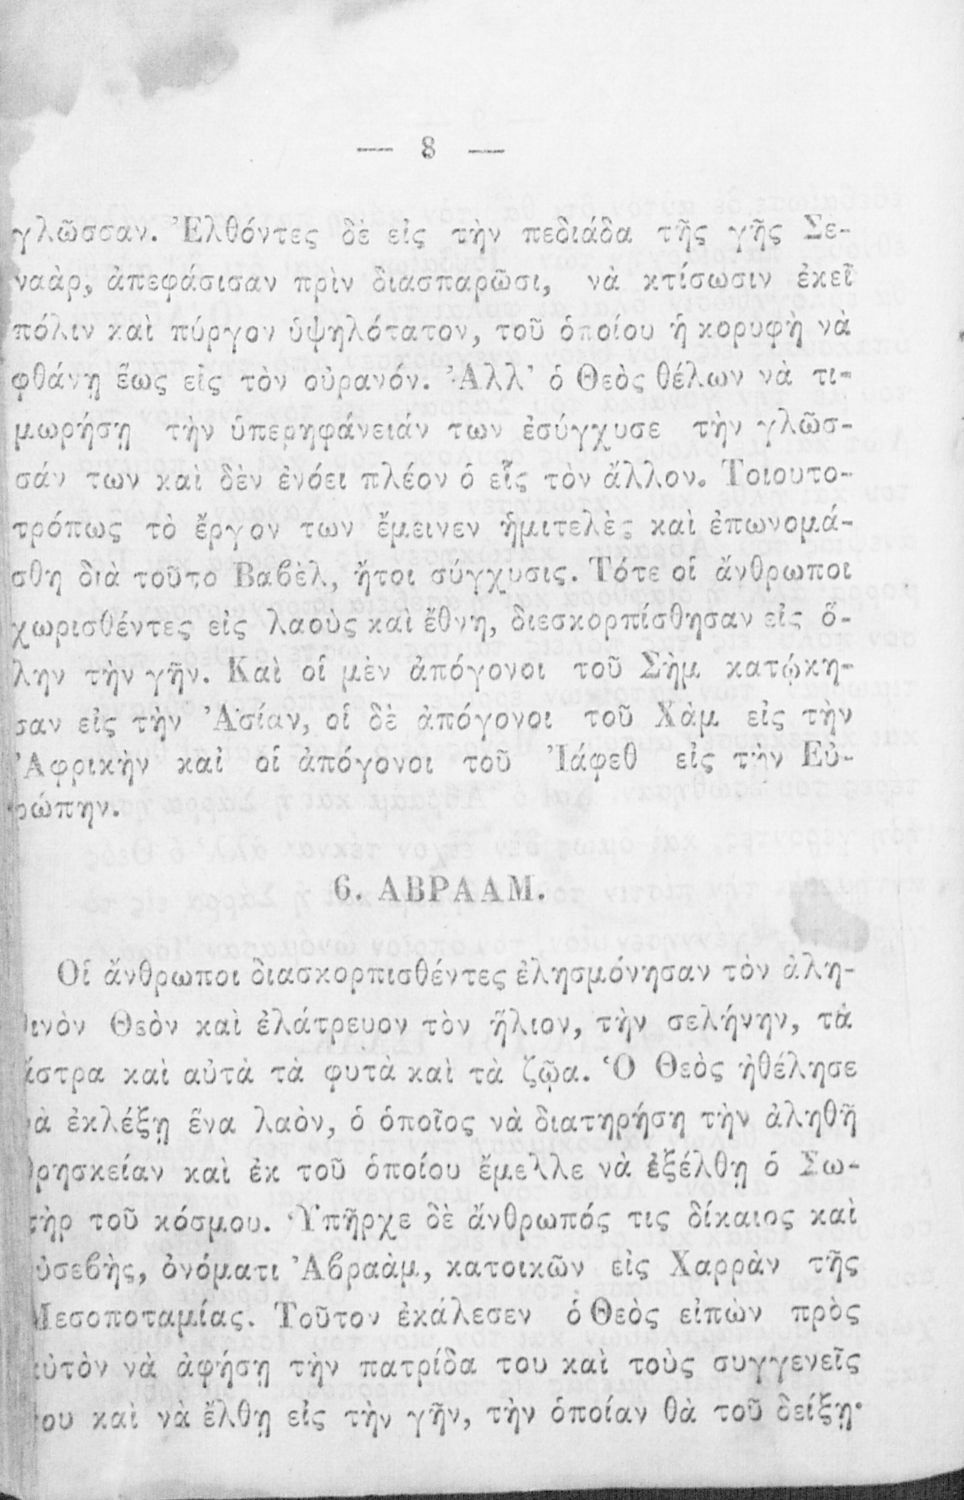 — 8 —
γλῶσσαν. Ἐλθόντες δὲ εἰς τὴν πεδιάδα τῆς γῆς Σε-
ναὰρ, ἀπεφάσισαν πρὶν διασπαρῶσι, νὰ κτίσωσιν ἐκεῖ
πόλιν καὶ πύργον ὑψηλότατον, τοῦ ὁποίου ἡ κορυφὴ νὰ
φθάνῃ ἕως εἰς τὸν οὐρανόν. Ἀλλ' ὁ Θεὸς θέλων νὰ τι-
μωρήσῃ τὴν ὑπερηφάνειάν των ἐσύγχυσε τὴν γλῶσ-
σάν των καὶ δὲν ἐνόει πλέον ὁ εἷς τὸν ἄλλον. Τοιουτο-
τρόπως τὸ ἔργον των ἔμεινεν ἡμιτελὲς καὶ ἐπωνομά-
σθη διὰ τοῦτο Βαβὲλ, ἤτοι σύγχυσις. Τότε οἱ ἄνθρωποι
χωρισθέντες εἰς λαοὺς καὶ ἔθνη, διεσκορπίσθησαν εἰς ὅ-
λην τὴν γῆν. Καὶ οἱ μὲν ἀπόγονοι τοῦ Σὴμ κατῴκη-
σαν εἰς τὴν Ἀσίαν, οἱ δὲ ἀπόγονοι τοῦ Χὰμ εἰς τὴν
Ἀφρικὴν καὶ οἱ ἀπόγονοι τοῦ Ἰάφεθ εἰς τὴν Εὐ-
ρώπην.
6. ΑΒΡΑΑΜ.
Οἱ ἄνθρωποι διασκορπισθέντες ἐλησμόνησαν τὸν ἀλη-
θινὸν Θεὸν καὶ ἐλάτρευον τὸν ἥλιον, τὴν σελήνην, τὰ
ἄστρα καὶ αὐτὰ τὰ φυτὰ καὶ τὰ ζῷα. Ὁ Θεὸς ἠθέλησε
νὰ ἐκλέξῃ ἕνα λαὸν, ὁ ὁποῖος νὰ διατηρήσῃ τὴν ἀληθῆ
θρησκείαν καὶ ἐκ τοῦ ὁποίου ἔμελλε νὰ ἐξέλθῃ ὁ Σω-
τὴρ τοῦ κόσμου. Ὑπῆρχε δὲ ἄνθρωπός τις δίκαιος καὶ
εὐσεβὴς, ὀνόματι Ἀβραὰμ, κατοικῶν εἰς Χαρρὰν τῆς
Μεσοποταμίας. Τοῦτον ἐκάλεσεν ὁ Θεὸς εἰπὼν πρὸς
αὐτὸν νὰ ἀφήσῃ τὴν πατρίδα του καὶ τοὺς συγγενεῖς
του καὶ νὰ ἔλθῃ εἰς τὴν γῆν, τὴν ὁποίαν θὰ τοῦ δείξῃ·